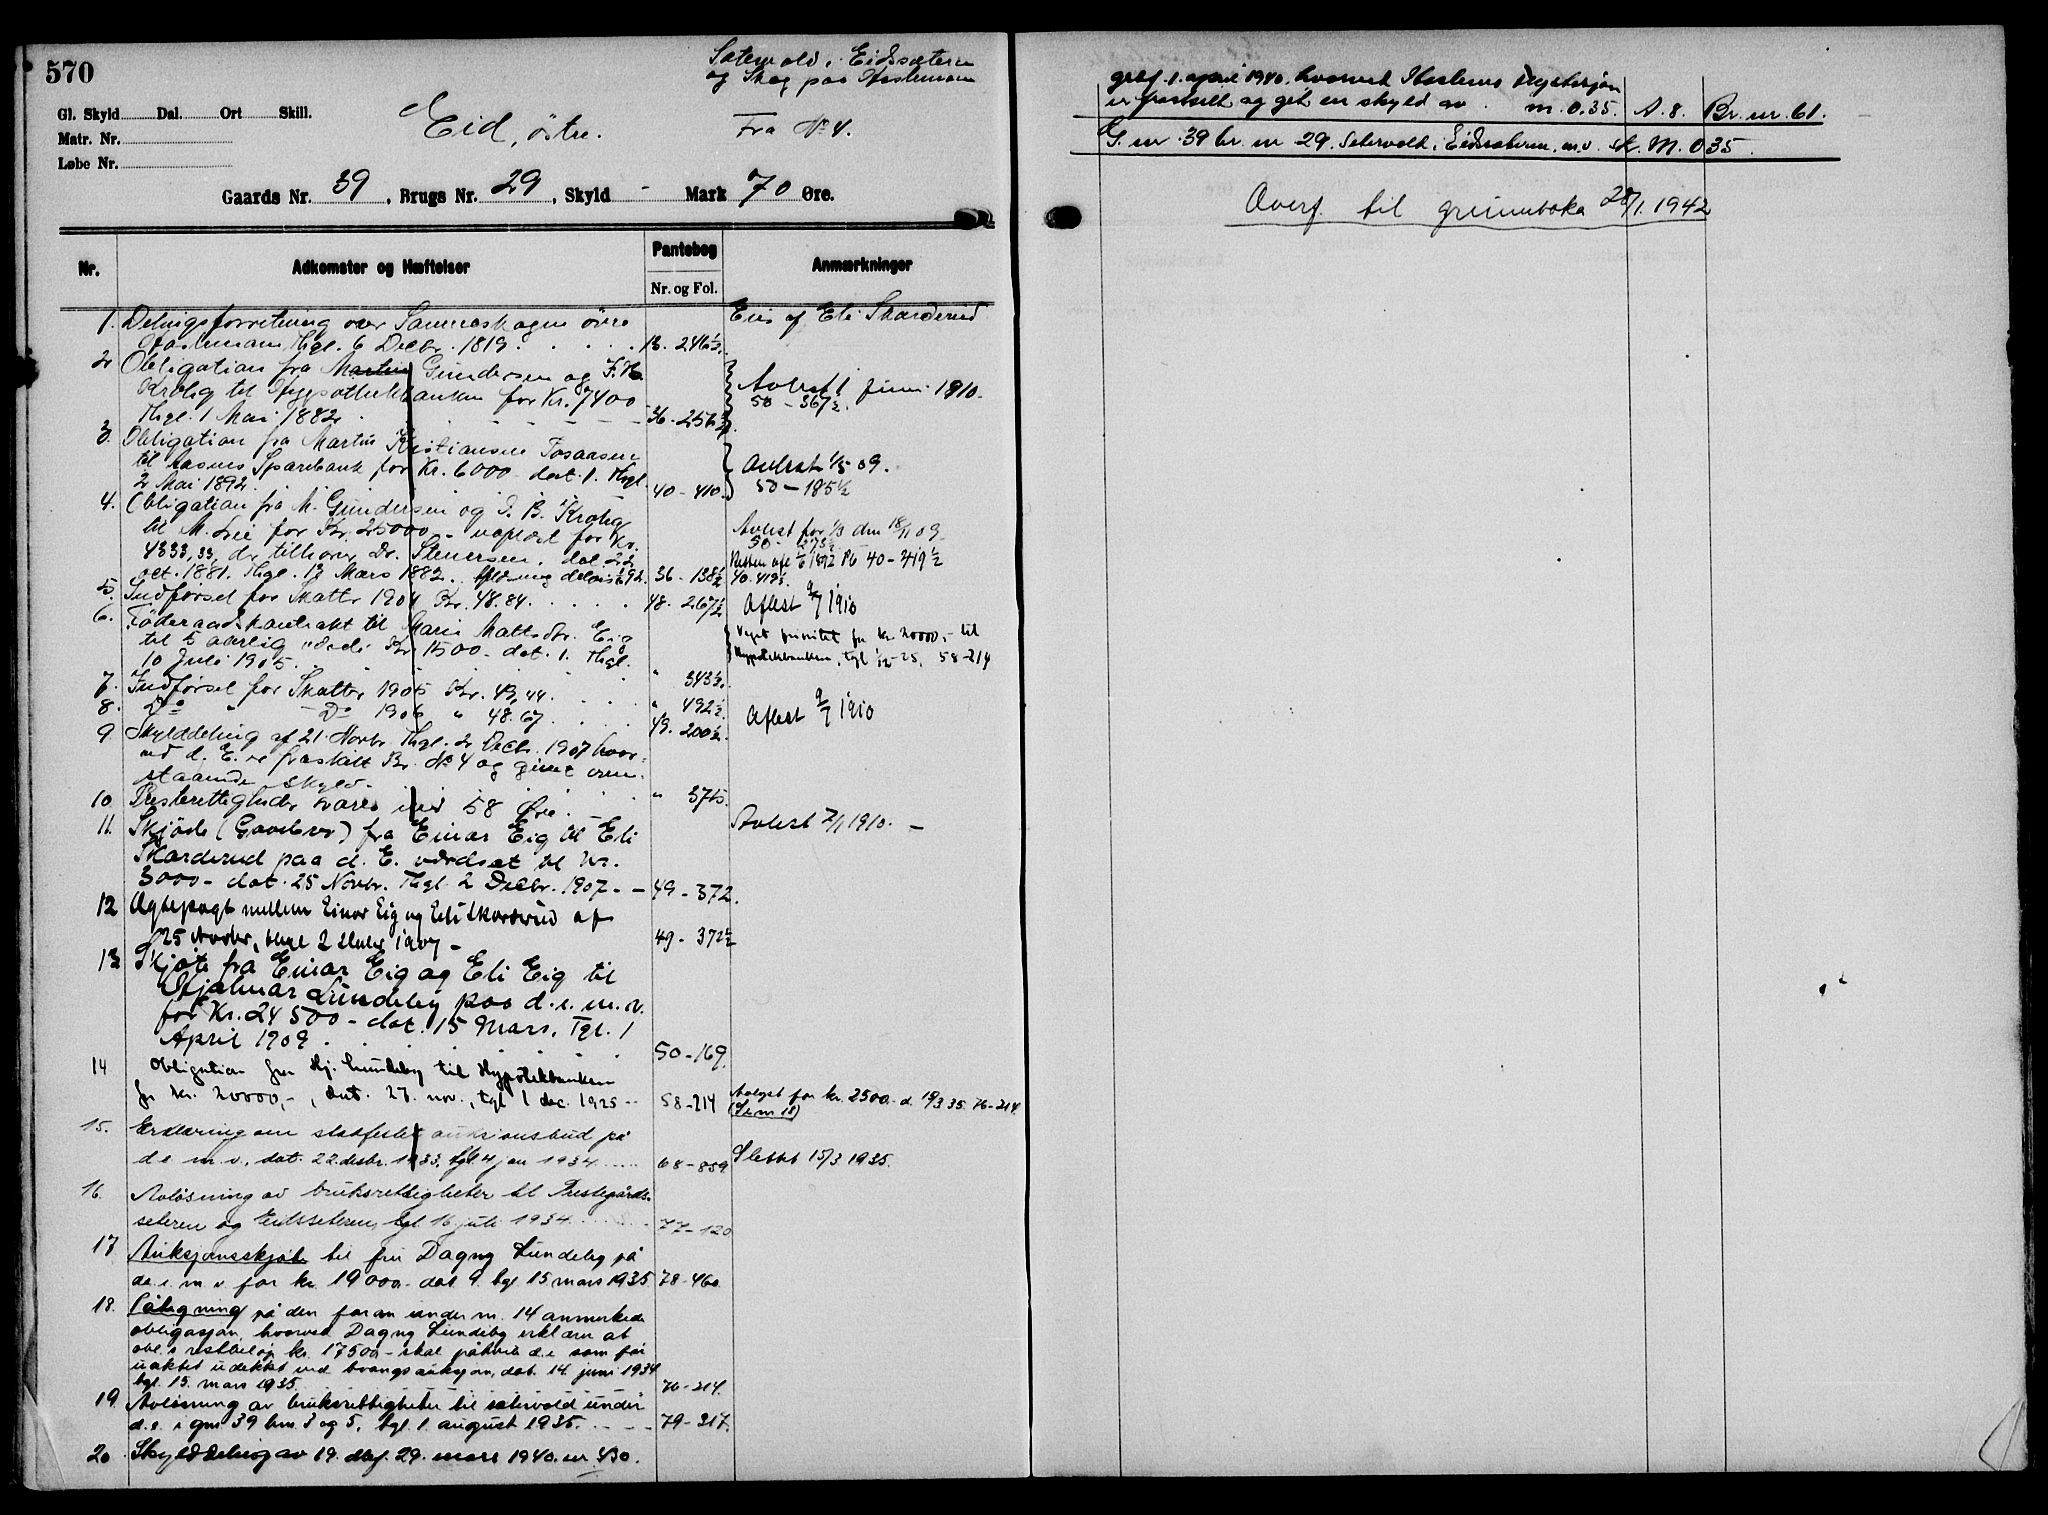 570
Sætervold, Eidssætern
og Skog paa Haslemoen
Gl. Skyld Dal. Ort Skill.
Matr. Nr.
Løbe Nr.
Eid, östre.
Fra № 4.
Gaards Nr. 39, Brugs Nr. 29, Skyld - Mark 70 Øre.
Nr.
Adkomster og Hæftelser
Pantebog
Nr. og Fol.
Anmærkninger
1. Delingsforretning over Sameieskogen övre
Haslemoen, Thgl. 6 Decbr. 1819. 13. 246½.
Eies af Eli Skarderud
2 Obligation fra Martin Gundersen og
Krohg til Hypothekbanken for Kr. 7400
Thgl. 1 Mai 1882. 36-256½.
Avlest 1 juni 1910.
50-367½.
3. Obligation fra Martin Kristiansen
til Aasnes Sparebank for Kr. 6000 dat. 1. Thgl.
2 Mai 1892. 40-410.
Avlest 1/5 09.
50-185½
4. Obligation fra M. Gundersen og Krohg
til M. Lie for Kr. 25000 - for Kr.
4333,33, der tilhører Dr. Stenersen, dat. 22
oct. 1881. Thgl. 13 Mars 1882. 36-138½
Avlest for 1/3 den 18/11 09
50-273½
Resten afl 1/6 1892 Pb 40-419½
40-419½
5. Indførsel for Skatter 1904 Kr. 48.84. 48-267½
Aflest 9/7 1910
6. Föderaadskontrakt til Maria Mattisdr. Eig
til 5 aarlig værdi Kr. 1500 - dat. 1. Thgl.
10 Juli 1905. " 343½.
Veget prioritet for kr. 20000,- til
Hypotekbanken, tgl 1/12-25, 58-214
7. Indførsel for Skatter 1905 Kr. 43,44. " 492½.
8. Do " Do 1906 " 48.67. 49. 200½.
Aflest 9/7 1910
9 Skylddeling af 21. Novbr. Thgl. 2 Decbr. 1907 hvor-
ved d. E. er fraskilt Br. № 4 og givet oven-
staaende skyld. " 371½.
10. Presterettigheder svares med 58 Øre.
Avlest 7/1 1910.
11. Skjöde (Gavebrev) fra Einar Eig til Eli
Skarderud paa d. E. værdsat til Kr.
3000 - dat. 25 Novbr. Thgl. 2 Decbr. 1907. 49-372.
12 Ægtepagt mellem Einar Eig og Eli Skarderud af
25 Novbr, thgl 2 Decbr 1907 - 49-372½
13 Skjöte fra Einar Eig og Eli Eig til
Hjalmar Lundeby paa d. e. m. v.
for Kr. 24500 - dat. 15 Mars. Tgl. 1
April 1909 50-169.
14 Obligation fra Hj. Lundeby til Hypotekbanken
for kr. 20000,-, dat. 27. nov., tgl 1 dec. 1925 58-214
Avlyst for kr. 2500.- d. 15/3 35. 76-214.
(Se nr 18)
15. Erklæring om stadfestet auksjonsbud på
d e m. v., dat. 22. desbr. 1933, tgl. 4 jan 1934 68-859.
Slettet 15/3 1935.
16. Avløsning av bruksrettigheter til Prestegårds-
seteren og Eidsseteren, tgl 16 juli 1934 77-120
17 Auksjonsskjøte til fru Dagny Lundeby på
de. e. m v for kr. 19000.- dat 9. tgl. 15 mars 1935 78-460.
18. Påtegning på den foran under nr. 14 anmerkede
obligasjon, hvorved Dagny Lundeby erklærer at
obl.s restbeløp kr. 17500.- skal påhvile d. e som før
uaktet udekket ved tvangsauksjon, dat. 14 juni 1934
tgl. 15. mars 1935 76-214.
19. Avløsning av bruksrettigheter til setervold under
d. e. i gnr 39 bnr. 3 og 5, tgl. 1. august 1935. 79-317.
20 Skylddeling av 19. dbf. 29. mars 1940. nr. 430.
graf. 1. april 1940, hvorved Haslemo
er fraskilt og git en skyld av m. 0.35. A. 8. Br. nr. 61.
G. nr. 39 br. nr 29. Setervold, Eidsseteren, m.v. sk. M. 0 35.
Overf. til grunnboka 28/1. 1942